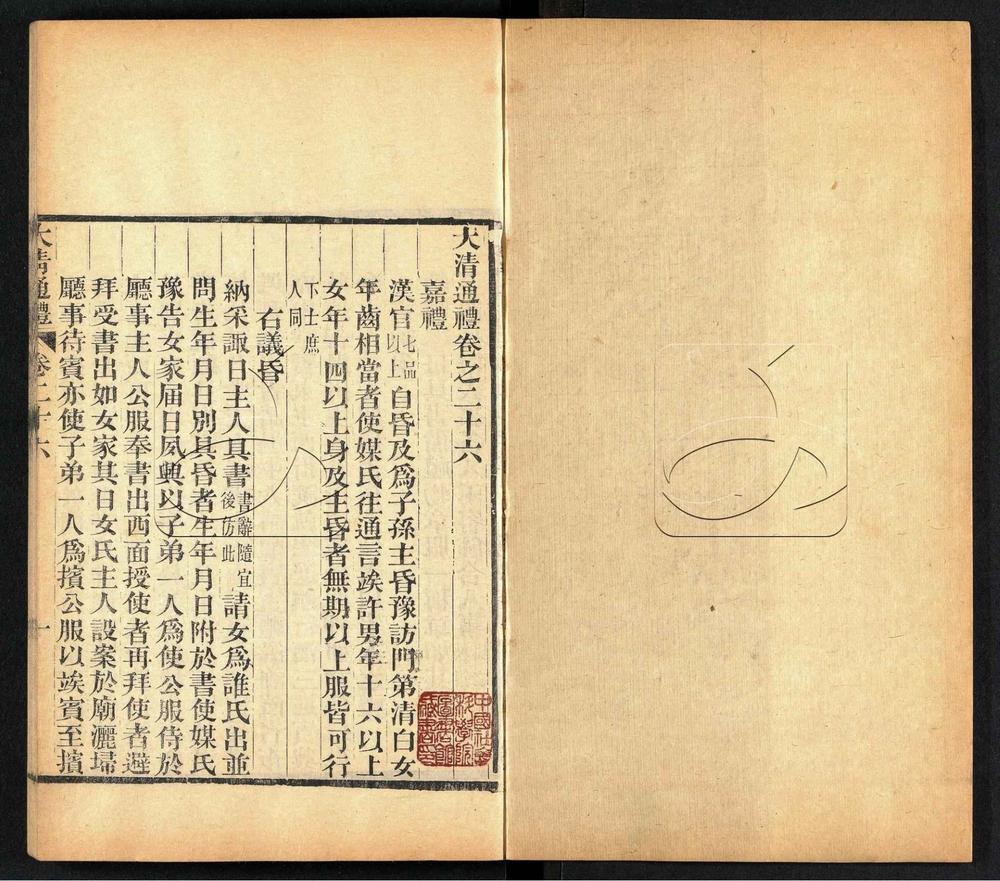 大清通禮卷之二十六
嘉禮
漢官七品以上自昏及爲子孫主昏豫訪門第清白女
年齒相當者使媒氏往通言竢許男年十六以上
女年十四以上身及主昏者無期以上服皆可行
下士庶人同
右議昏
納采諏日主人具書書辭隨宜後仿此請女爲誰氏出並
問生年月日別具昏者生年月日附於書使媒氏
豫告女家届日夙興以子弟一人爲使公服侍於
廳事主人公服奉書出西面授使者再拜使者避
拜受書出如女家其日女氏主人設案於廟灑埽
廳事待賓亦使子弟一人爲擯公服以竢賓至擯
大清通禮 卷二十六 一